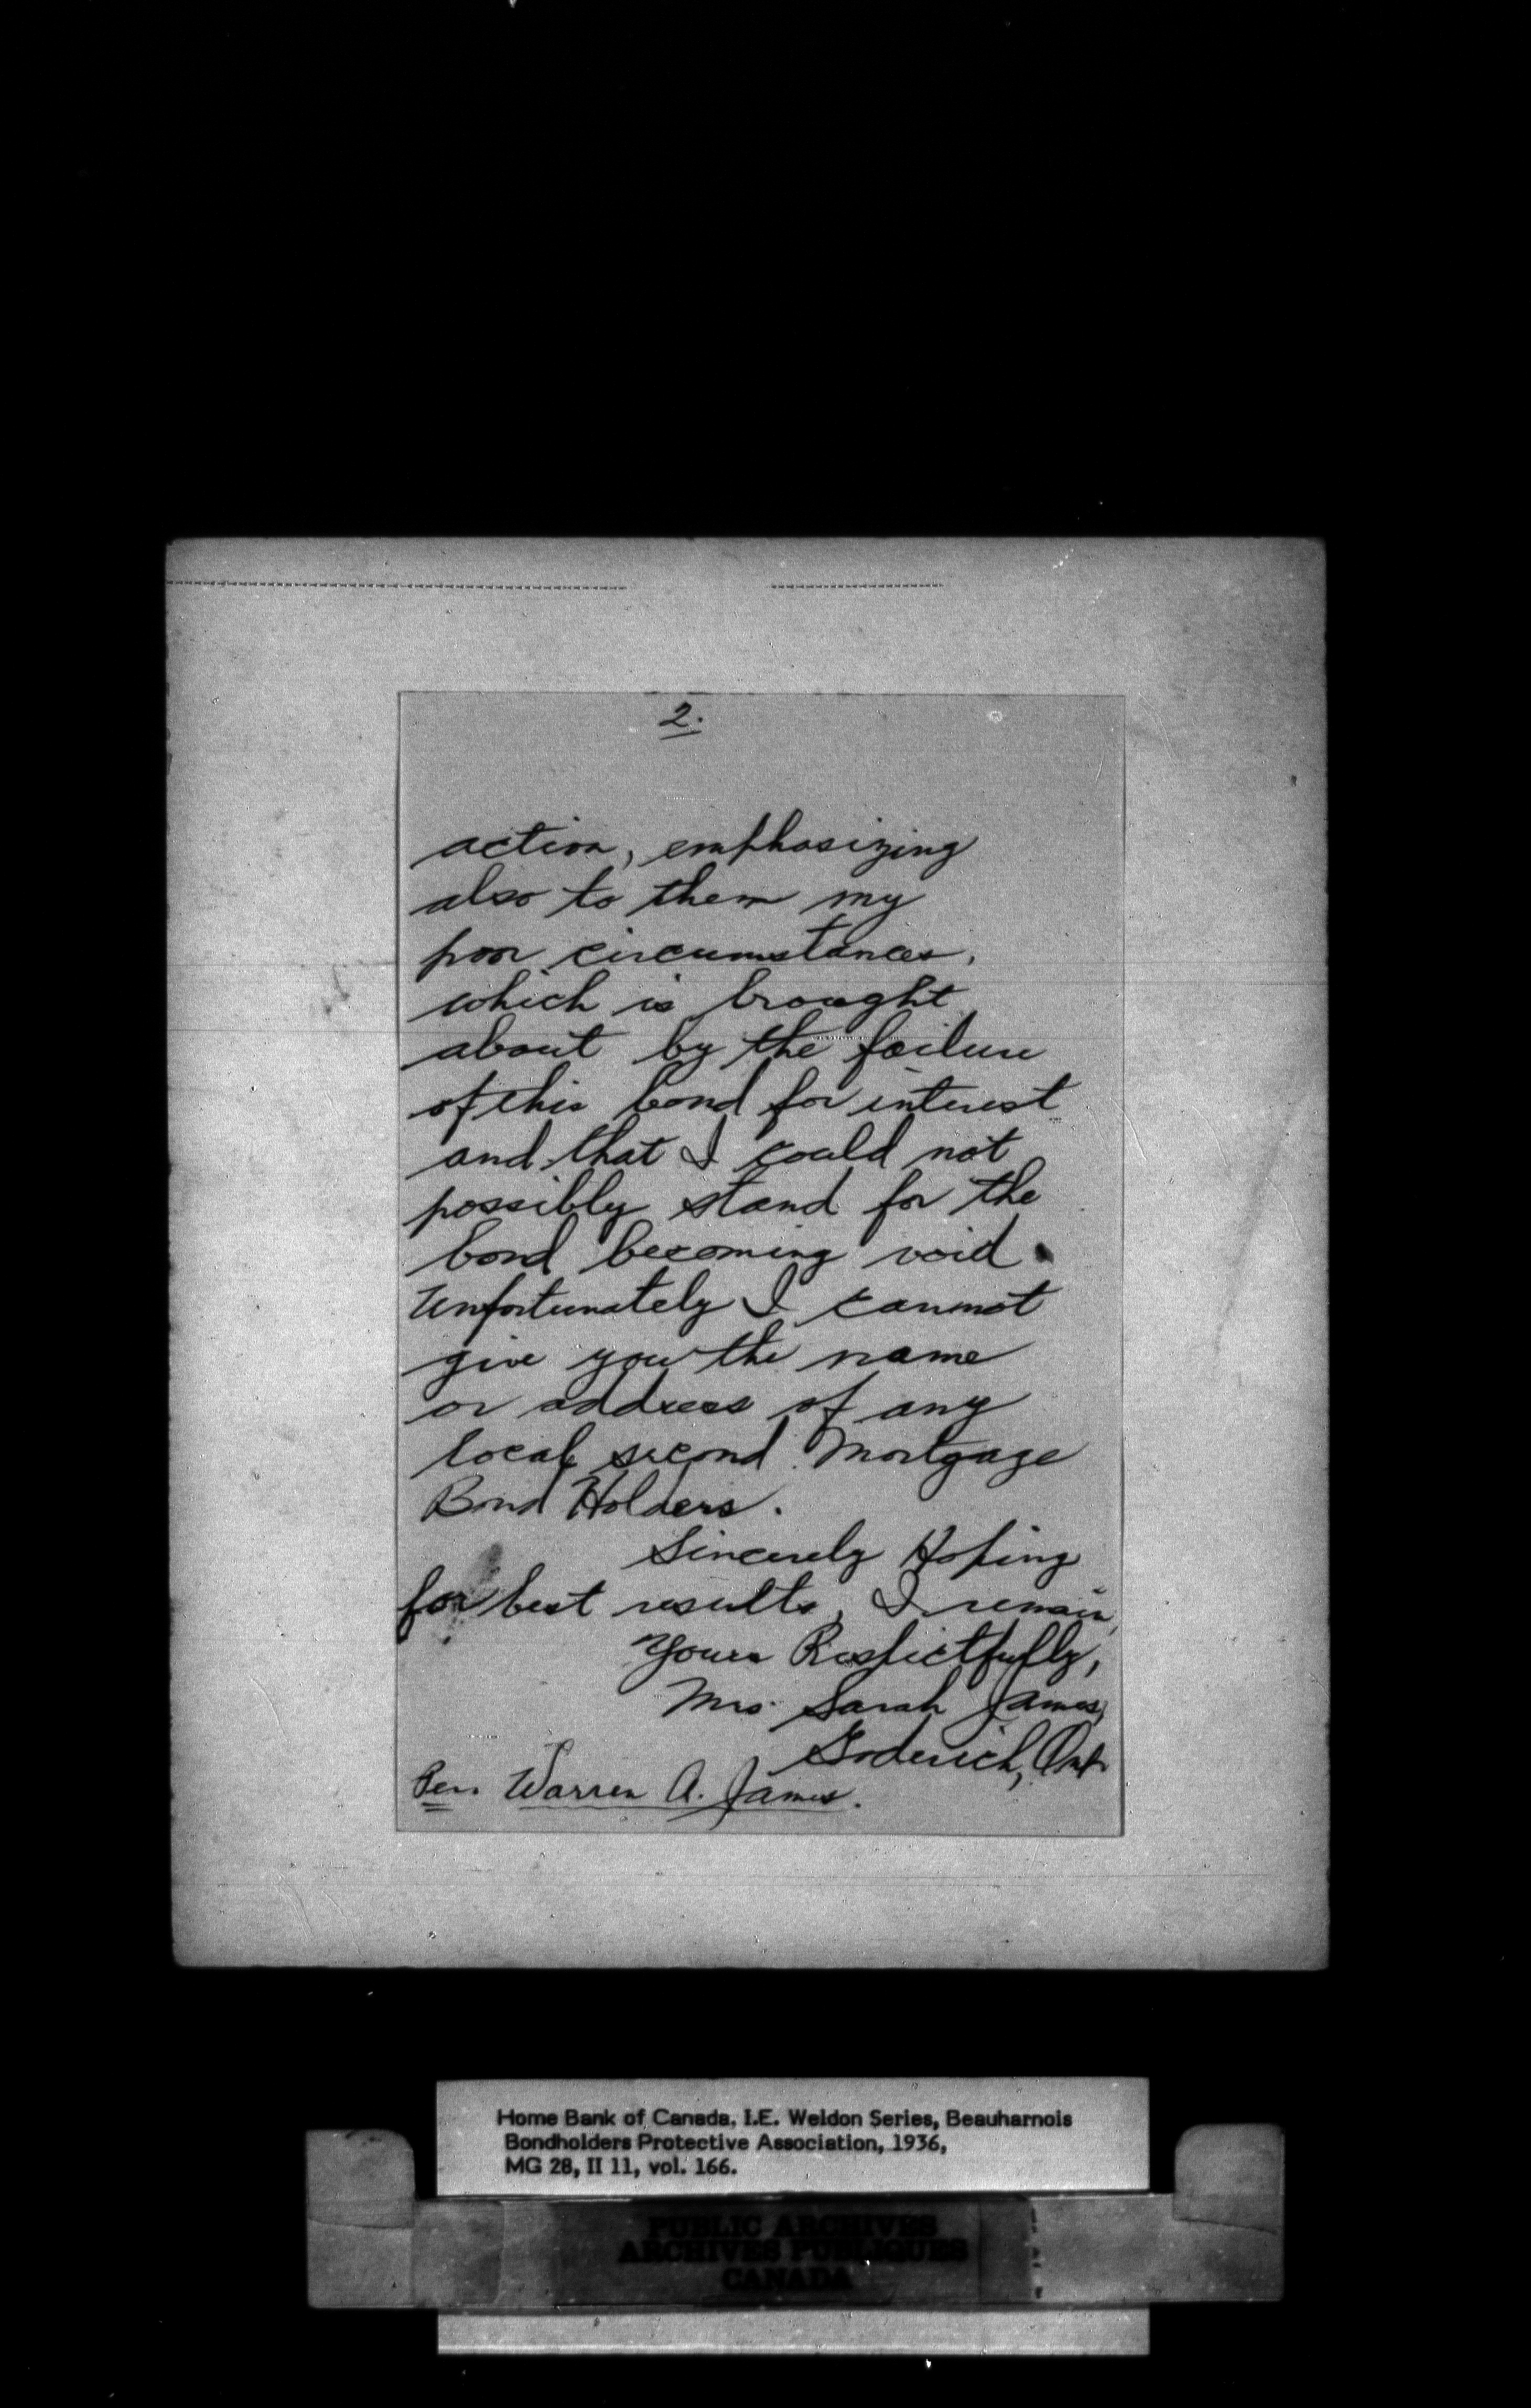 2.
action, emphasizing
also to them my
poor circumstances,
which is brought
about by the failure
of this bond for interest
and that I could not
possibly stand for the
bond becoming void.
Unfortunately I cannot
give you the name
or address of any
local second Mortgage
Bond Holders.
Sincerely Hoping
for best results, I remain,
Yours Respectfully,
Mrs. Sarah James,
Goderich, Ont.
Per. Warren A. James.
Home Bank of Canada. I.E. Weldon Series, Beauharnois
Bondholders Protective Association, 1936,
MG 28, II 11, vol. 166.
PUBLIC ARCHIVES
ARCHIVES PUBLIQUES
CANADA